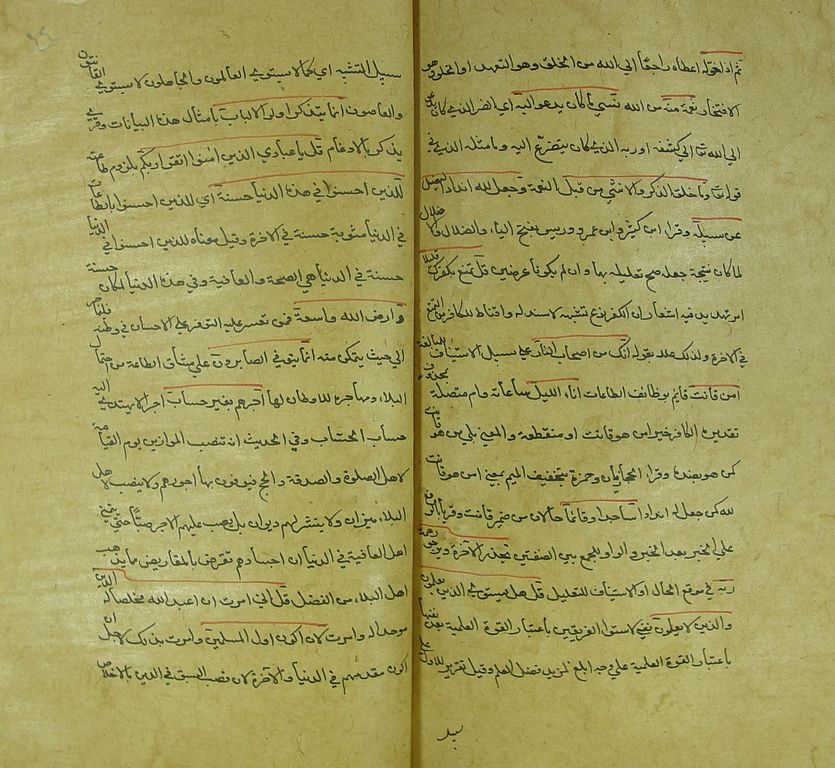 ثم اذا خوله اعطاه راجعا الي الله من الخلق وهو التعهد او الخول وهو
الافتخار نعمة منه من الله نسي ما كان يدعو اليه اي الضر الذي كان يدعو
الي الله تعا الي كشفه او ربه الذي كان يتضرع اليه وما مثله الذي في
قوله تعا وما خلق الذكر والانثي من قبل النعمة وجعل لله اندادا ليضل
عن سبيله وقرا ابن كثير وابن عمرو ورويس بفتح الياء والضلال والاضلال
لما كان نتيجة جعله صح تعليله بهما وان لم يكونا غرضين قل تمتع بكفرك قليلا
امر تهديد فيه اشعار بان الكفر نوع تشبه لا سند له واقناط للكافرين من التمتع
في الاخرة ولذلك علله بقوله انك من اصحاب النار علي سبيل الاستيناف للمبالغة
امن قانت قايم بوظائف الطاعات اناء الليل ساعاته وام متصلة بمحذوف
تقديره الكافر خير امن هو قانت او منقطعة والمعني بل من هو قانت
كمن هو بضده وقرا الحجازيان وحمزة بتخفيف الميم بمعني امن هو قانت
لله كمن جعل له اندادا ساجدا وقائما حالان من ضمير قانت وقرئا بالرفع
علي الخبر بعد الخبر والواو للجمع بين الصفتين يحذر الاخرة ويرجو رحمة
ربه في موقع الحال او الاستيناف للتعليل قل هل يستوي الذين يعلمون
والذين لا يعلمون نفي لاستواء الفريقين باعتبار القوة العلمية بعد نفيها
باعتبار القوة العملية علي وجه ابلغ لمزيد فضل العلم وقيل تقرير للاول علي
سبيل
سبيل التشبيه اي كما لا يستوي العالمون والجاهلون لا يستوي القانتون
والعاصون انما يتذكر اولو الالباب بامثال هذه البيانات وقري
يذكر بالادغام قل يا عبادي الذين امنوا اتقوا ربكم بلزوم طاعته
للذين احسنوا في هذه الدنيا حسنة اي للذين احسنوا بالطاعات
في الدنيا مثوبة حسنة في الاخرة وقيل معناه للذين احسنوا في الدنيا
حسنة في الدنيا هي الصحة والعافية وفي هذه الدنيا لمكان حسنة
وارض الله واسعة فمن تعسر عليه التوفر علي الاحسان في وطنه فليهاجر
الي حيث يتمكن منه انما يوفي الصابرون علي مشاق الطاعة من احتمال
البلاء ومهاجرة الاوطان لها اجرهم بغير حساب اجرا لا يهتدي اليه
حساب الحساب وفي الحديث انه تنصب الموازين يوم القيامة
لاهل الصلوة والصدقة والحج فيوفون بها اجورهم ولا ينصب لاهل
البلاء ميزان ولا ينشر لهم ديوان بل يصب عليهم الاجر صبا حتي يتمني
اهل العافية في الدنيا ان اجسادهم تقرض بالمقاريض مما يذهب
اهل البلاء من الفضل قل اني امرت ان اعبد الله مخلصا له الدين
موحدا له وامرت لان اكون اول المسلمين وامرت بذلك لاجل ان
اكون مقدمهم في الدنيا والاخرة لان قصب السبق في الدين بالاخلاص